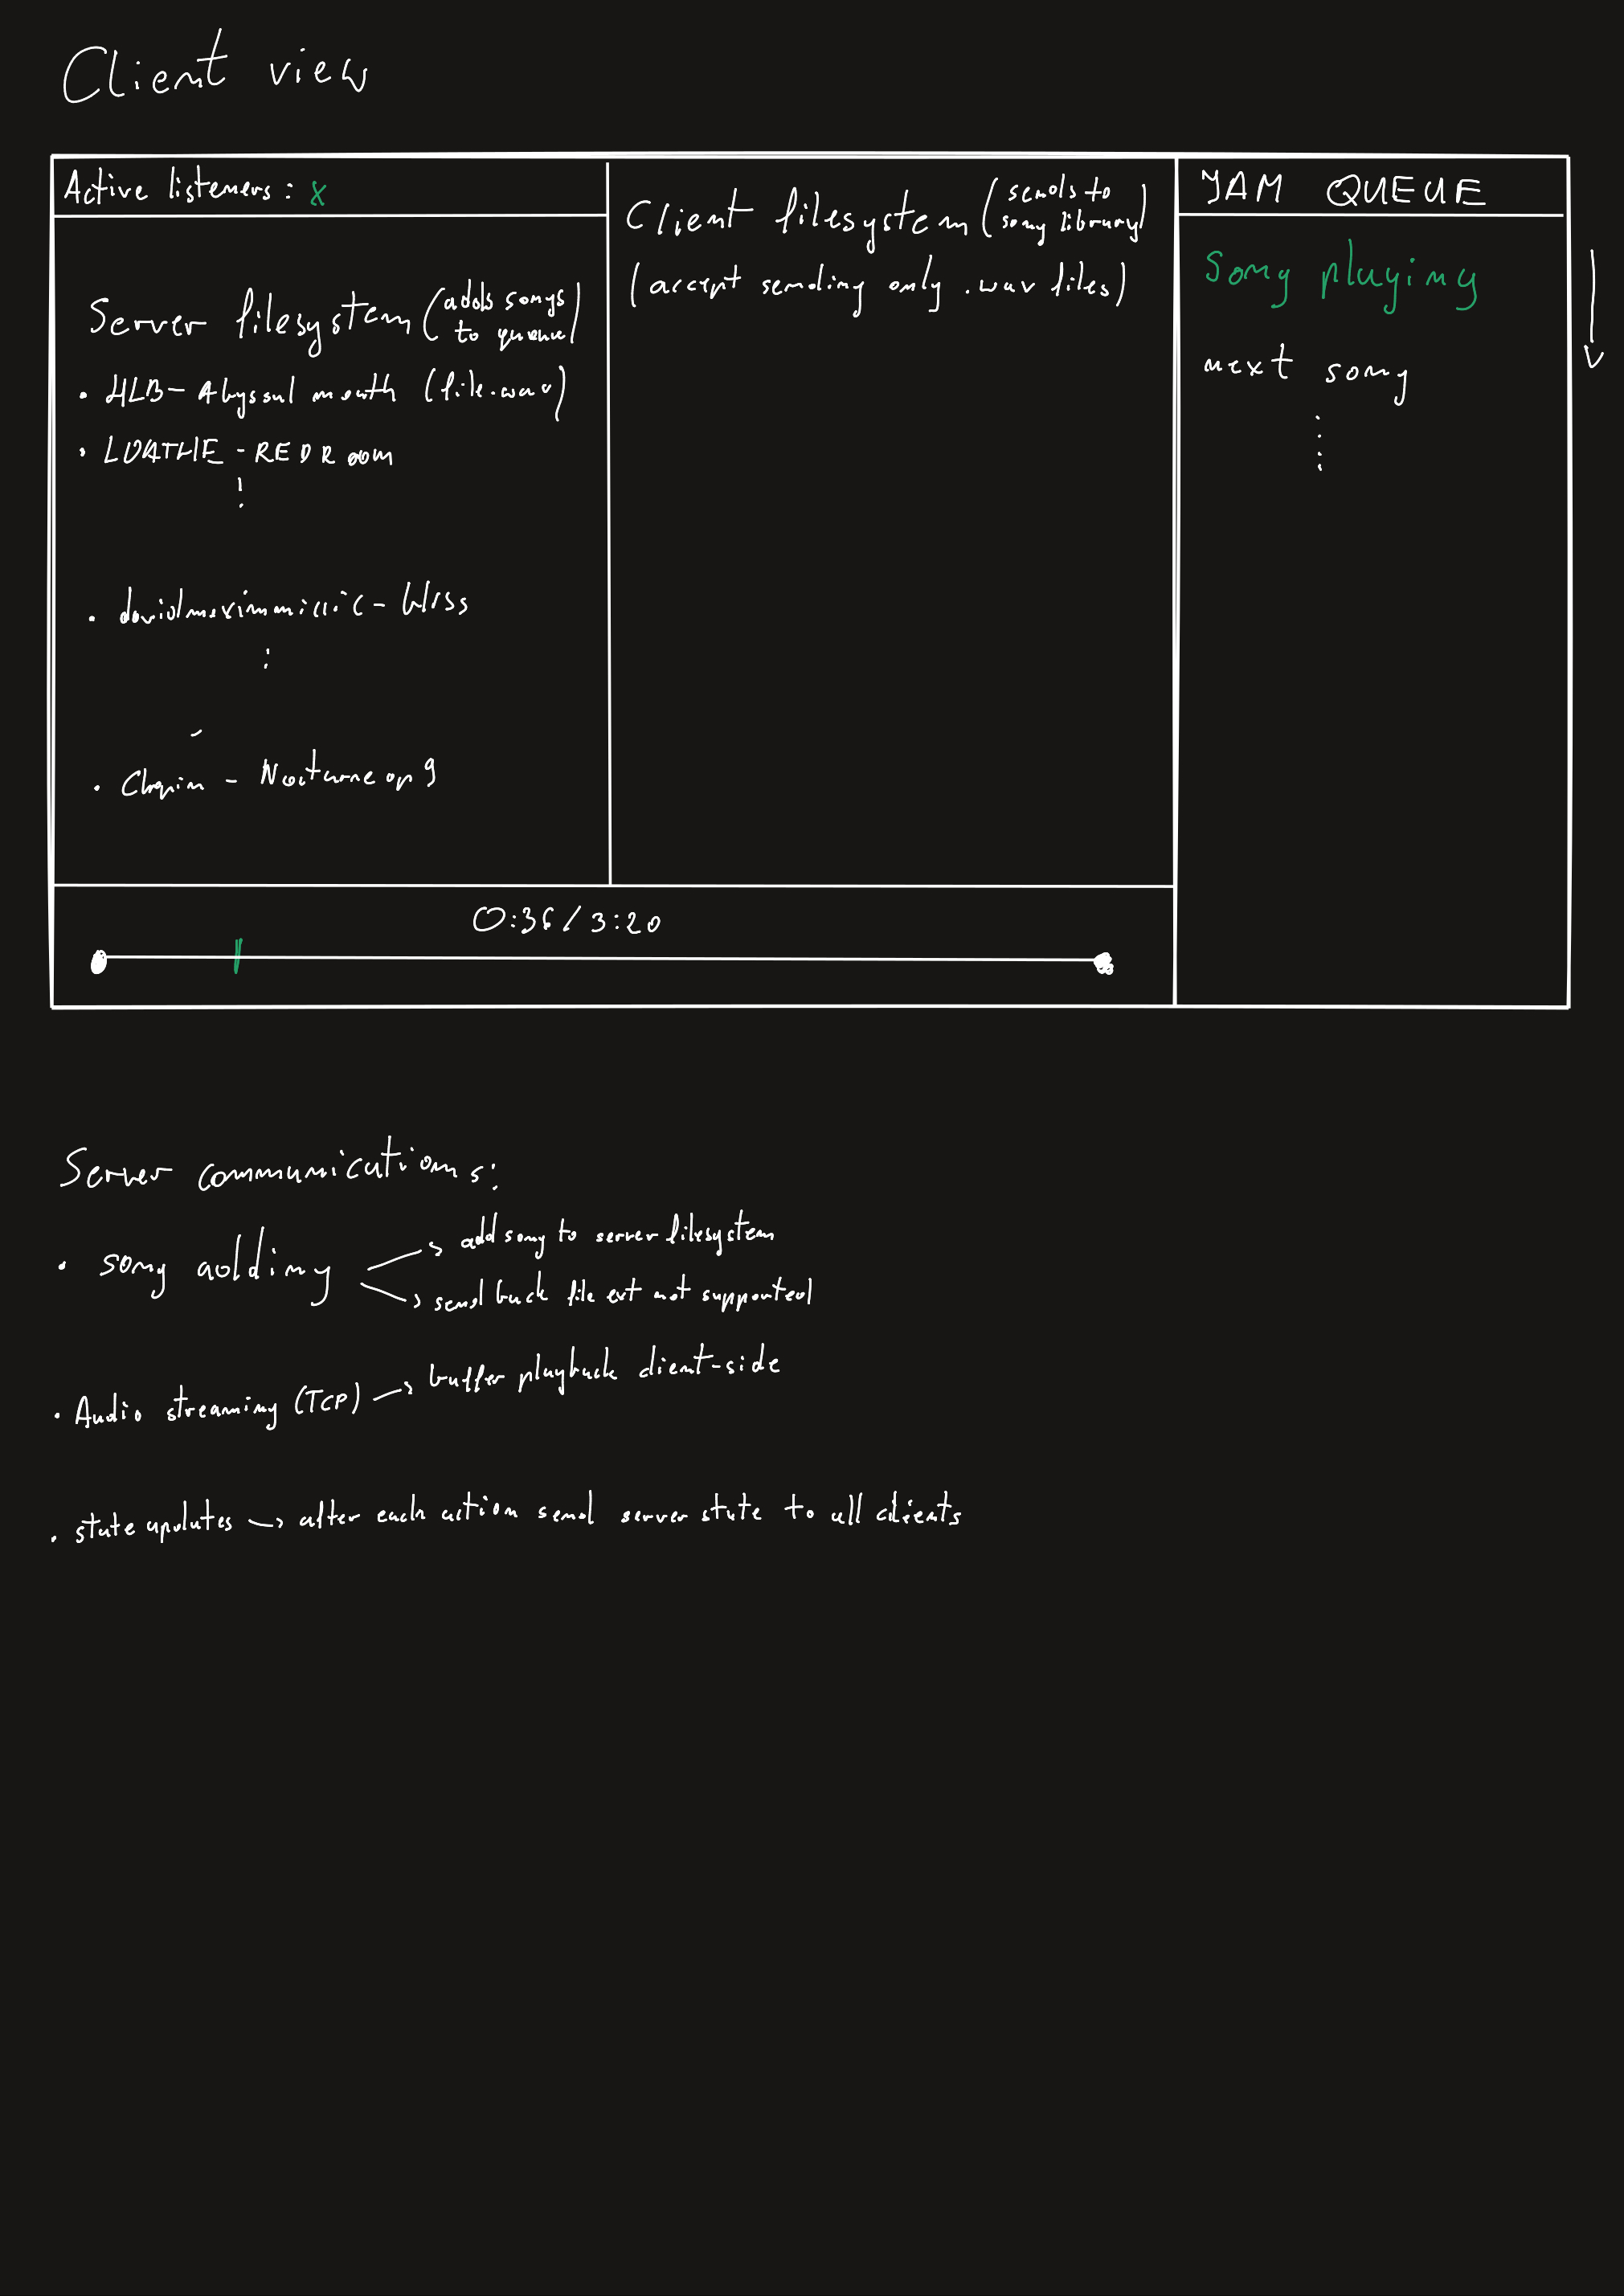 Client view
Active listeners: x
Server filesystem (adds songs
to queue)
• HLB - Abyssal mouth (file.wav)
• LOATHE - RED Room
• - bliss
• Chopin - Nocturne op 9
Client filesystem (sends to
song library)
(accept sending only .wav files)
JAM QUEUE
Song playing
next song
0:36 / 3:20
Server communications:
• song adding
→ add song to server filesystem
→ send back file ext not supported
• Audio streaming (TCP) → buffer playback client-side
• state updates → after each action send server state to all clients